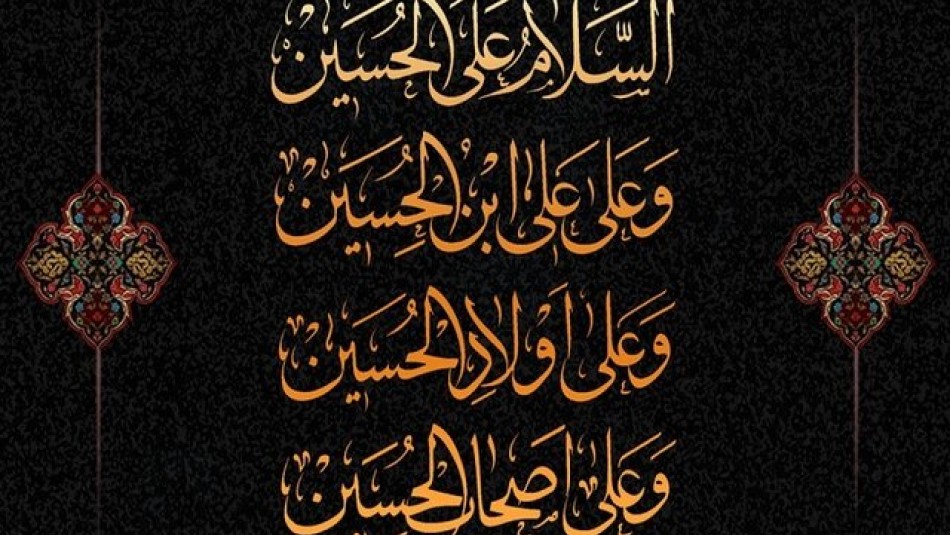 السَّلَامُ عَلَى الحُسَيْن
وَعَلى عَلى ابْنِ الحُسَيْن
وَعَلى اَوْلادِ الحُسَيْن
وَعَلى اَصحابِ الحُسَيْن